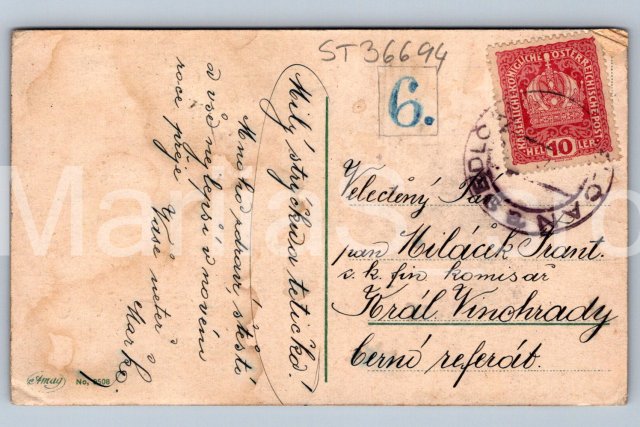 ST36694
6.
KAISERLICHE KÖNIGLICHE ÖSTERREICHISCHE POST
HELLER
10
SEDLČANY
Milý strýčku a tetičko!
Mnoho zdraví štěstí
a vše nejlepší v novém
roce přeje
Vaše neteř
Velectěný Pán
pan Miláček Frant.
c. k. fin komisař
Král Vinohrady
berní referát.
Amag
No. 0508